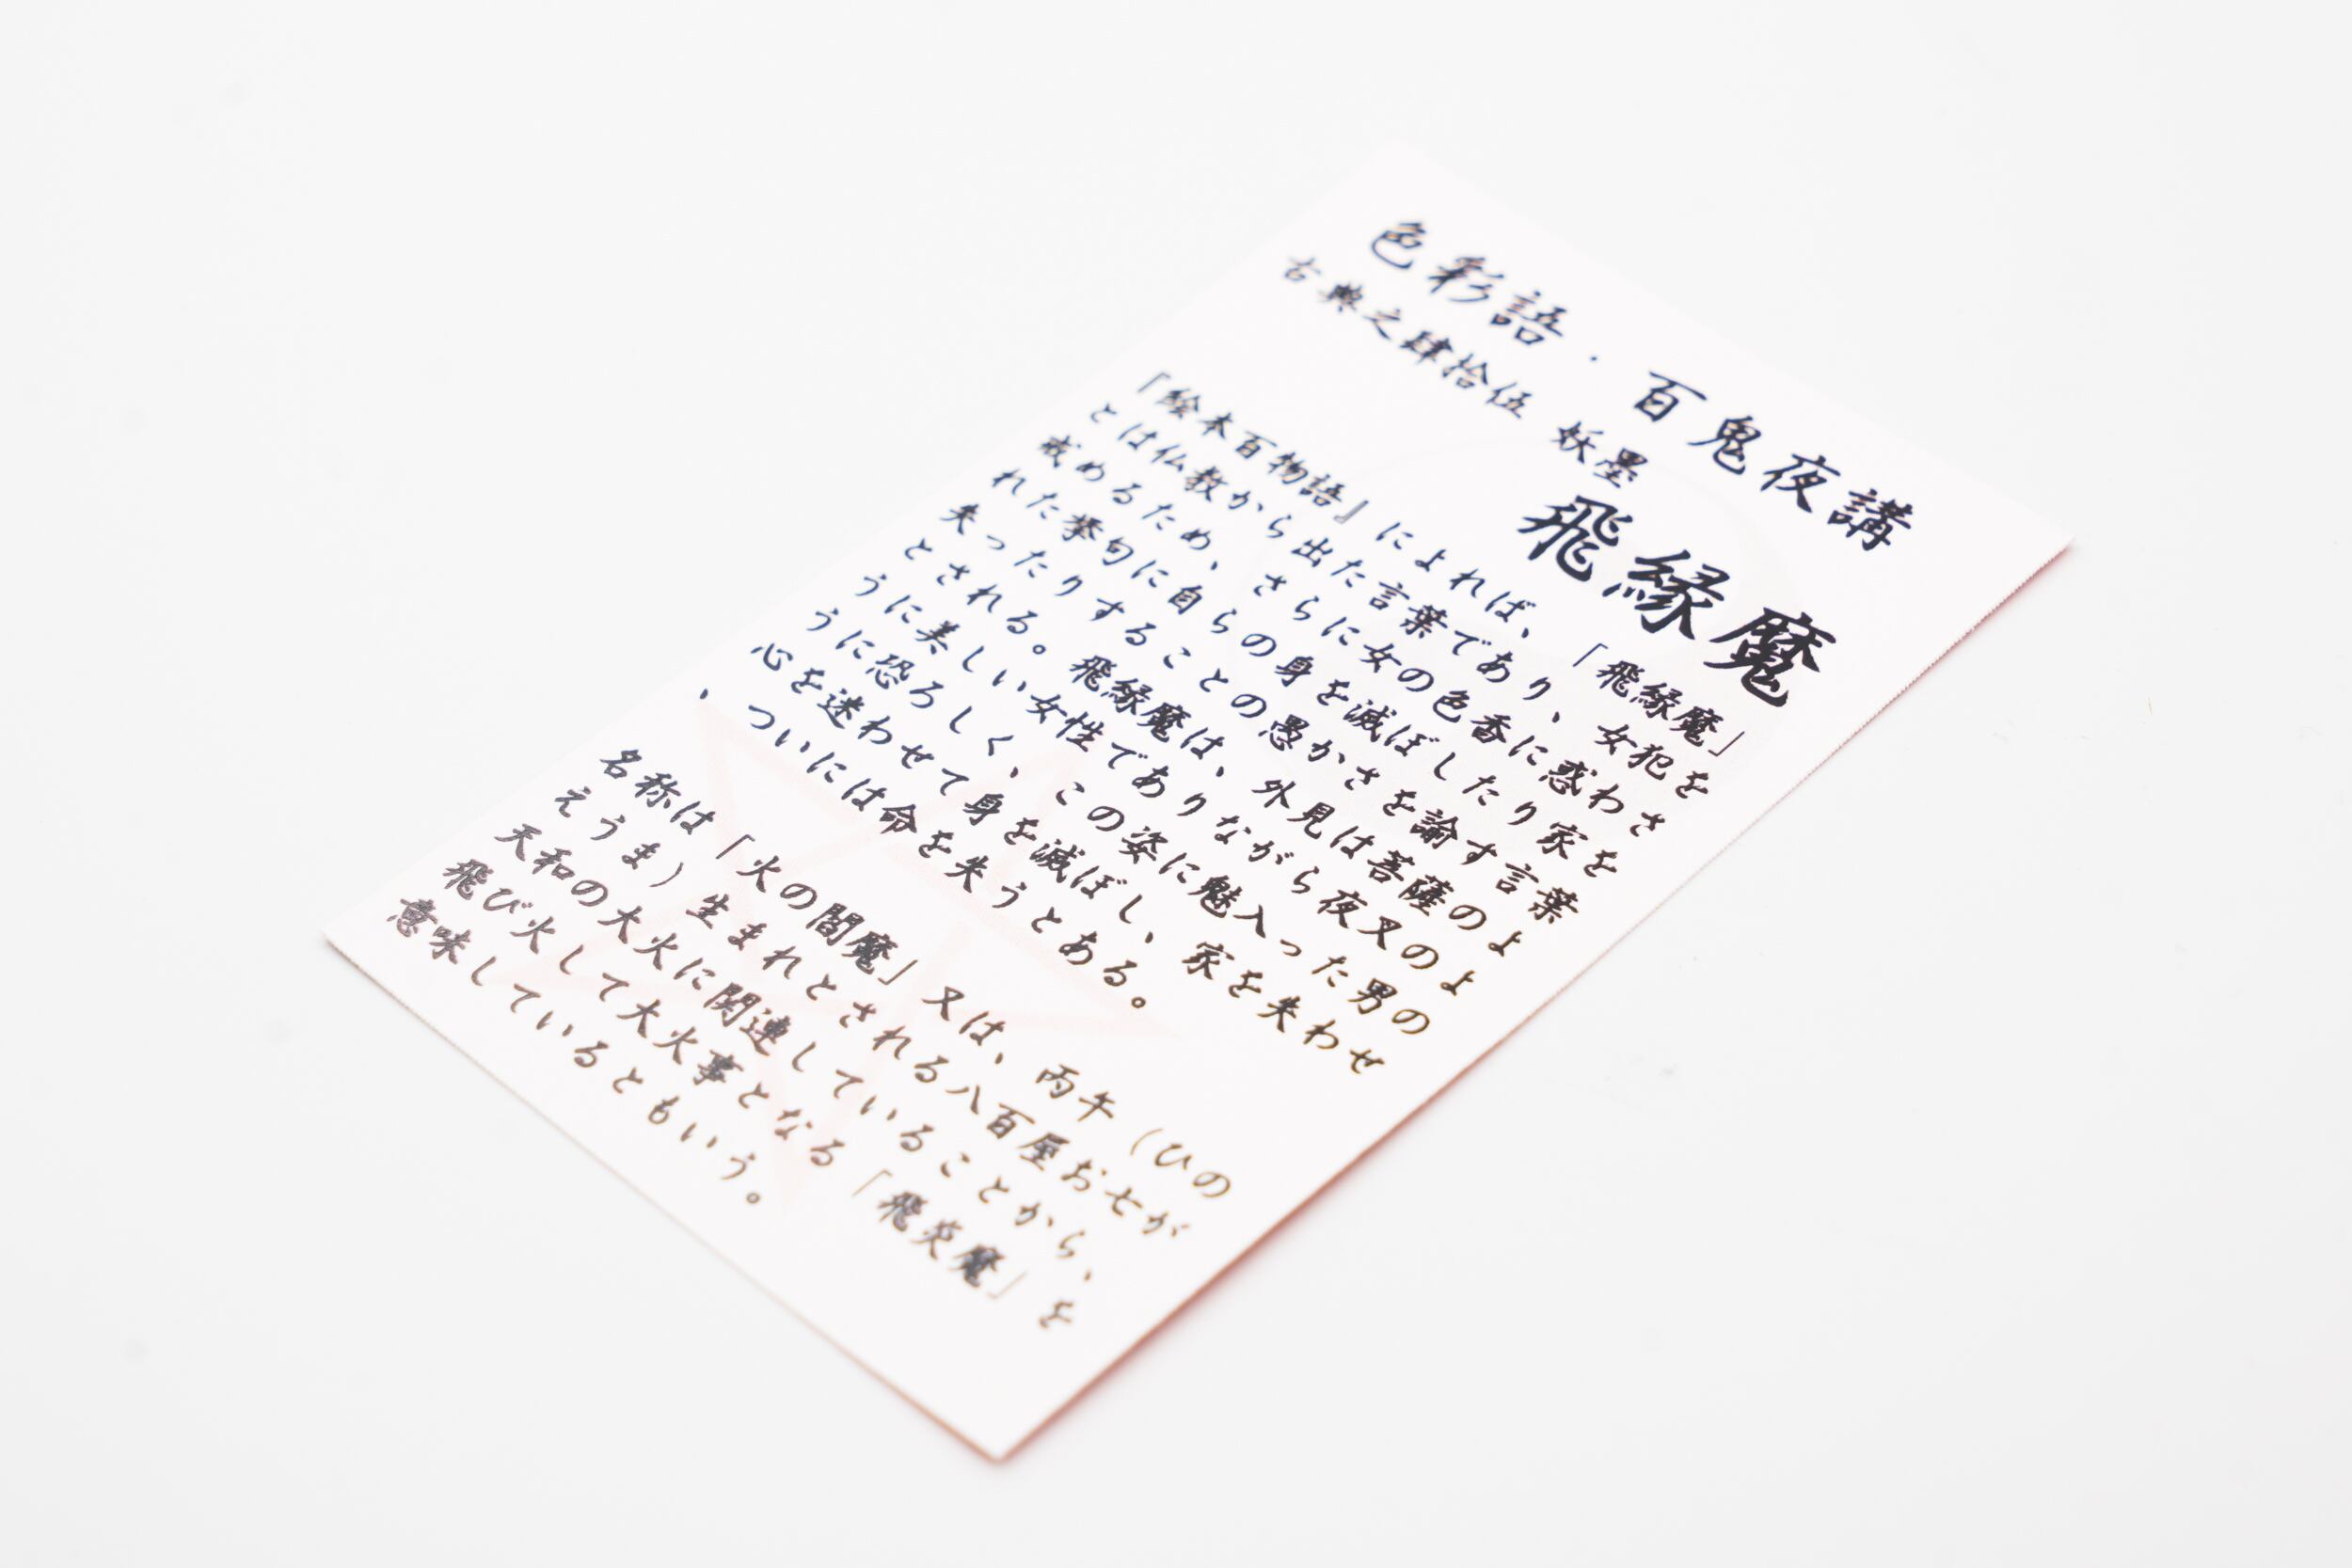 色彩語・百鬼夜講
古典之肆拾伍 妖墨
飛縁魔
『絵本百物語』によれば、「飛縁魔」
とは仏教から出た言葉であり、女犯を
戒めるため、さらに女の色香に惑わさ
れた挙句に自らの身を滅ぼしたり家を
失ったりすることの愚かさを諭す言葉
とされる。飛縁魔は、外見は菩薩のよ
うに美しい女性でありながら夜叉のよ
うに恐ろしく、この姿に魅入った男の
心を迷わせて身を滅ぼし、家を失わせ
、ついには命を失うとある。
名称は「火の閻魔」又は、丙午（ひの
えうま）生まれとされる八百屋お七が
天和の大火に関連していることから、
飛び火して大火事となる「飛炎魔」を
意味しているともいう。